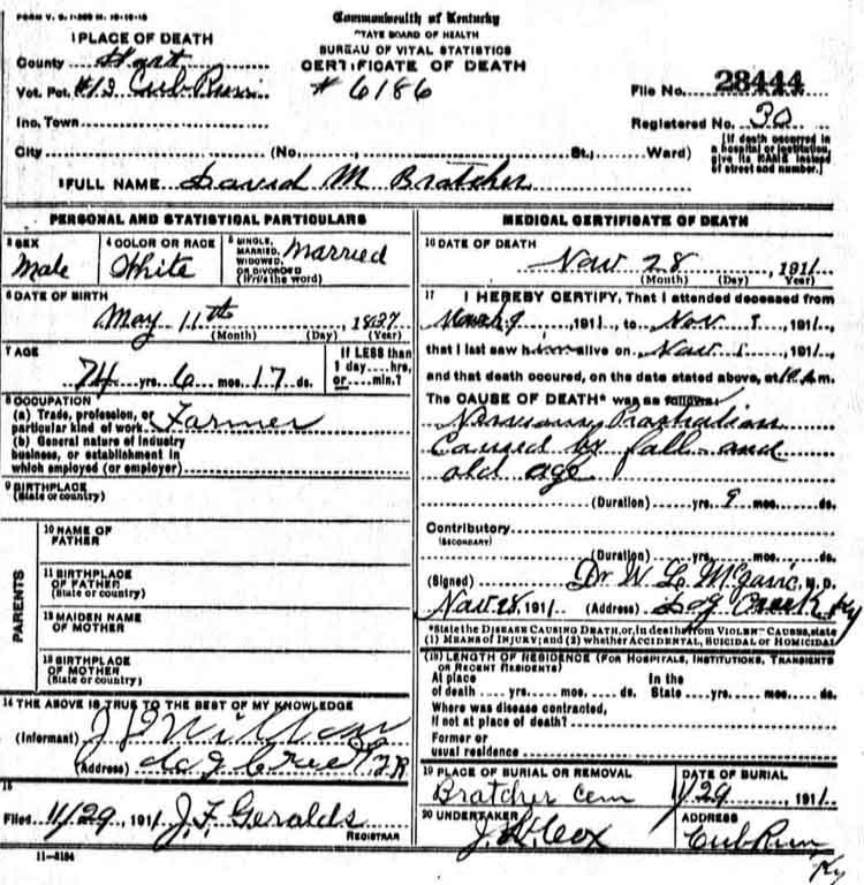 FORM V. S. 1-
Commonwealth of Kentucky
STATE BOARD OF HEALTH
BUREAU OF VITAL STATISTICS
CERTIFICATE OF DEATH
1 PLACE OF DEATH
County Hart
Vot. Pct. #13 Cub Run
# 6186
File No. 28444
Inc. Town
Registered No. 30
City (No. St.; Ward)
[If death occurred in a hospital or institution, give its NAME instead of street and number.]
2 FULL NAME David M Bratcher
PERSONAL AND STATISTICAL PARTICULARS
3 SEX
Male
4 COLOR OR RACE
White
5 SINGLE, MARRIED, WIDOWED, OR DIVORCED (Write the word)
Married
6 DATE OF BIRTH
May 11th, 1837
(Month) (Day) (Year)
7 AGE
74 yrs. 6 mos. 17 ds.
If LESS than 1 day hrs, or min.?
8 OCCUPATION
(a) Trade, profession, or
particular kind of work Farmer
(b) General nature of industry
business, or establishment in
which employed (or employer)
9 BIRTHPLACE
(State or country)
PARENTS
10 NAME OF FATHER
11 BIRTHPLACE OF FATHER
(State or country)
12 MAIDEN NAME OF MOTHER
13 BIRTHPLACE OF MOTHER
(State or country)
14 THE ABOVE IS TRUE TO THE BEST OF MY KNOWLEDGE
(Informant)
(Address)
15
Filed 11/29, 1911 J. F. Geralds
REGISTRAR
11-3184
MEDICAL CERTIFICATE OF DEATH
16 DATE OF DEATH
Nov 28, 1911
(Month) (Day) Year)
17 I HEREBY CERTIFY, That I attended deceased from
March 9, 1911, to Nov, 1911,
that I last saw him alive on Nov, 1911,
and that death occured, on the date stated above, at m.
The CAUSE OF DEATH* was as follows:
Nervous Prostration
Caused by fall and
old age
(Duration) yrs. 9 mos. ds.
Contributory
(SECONDARY)
(Duration) yrs. mos. ds.
(Signed) Dr W L M. D.
Nov 28, 1911 (Address) Dog Creek Ky
*State the DISEASE CAUSING DEATH, or, in deaths from VIOLENT CAUSES, state
(1) MEANS OF INJURY; and (2) whether ACCIDENTAL, SUICIDAL or HOMICIDAL
(18) LENGTH OF RESIDENCE (FOR HOSPITALS, INSTITUTIONS, TRANSIENTS
OR RECENT RESIDENTS)
At place In the
of death yrs. mos. ds. State yrs. mos. ds.
Where was disease contracted,
if not at place of death?
Former or
usual residence
19 PLACE OF BURIAL OR REMOVAL
Bratcher Cem
DATE OF BURIAL
11/29, 1911
20 UNDERTAKER
Cox
ADDRESS
Cub Run
Ky